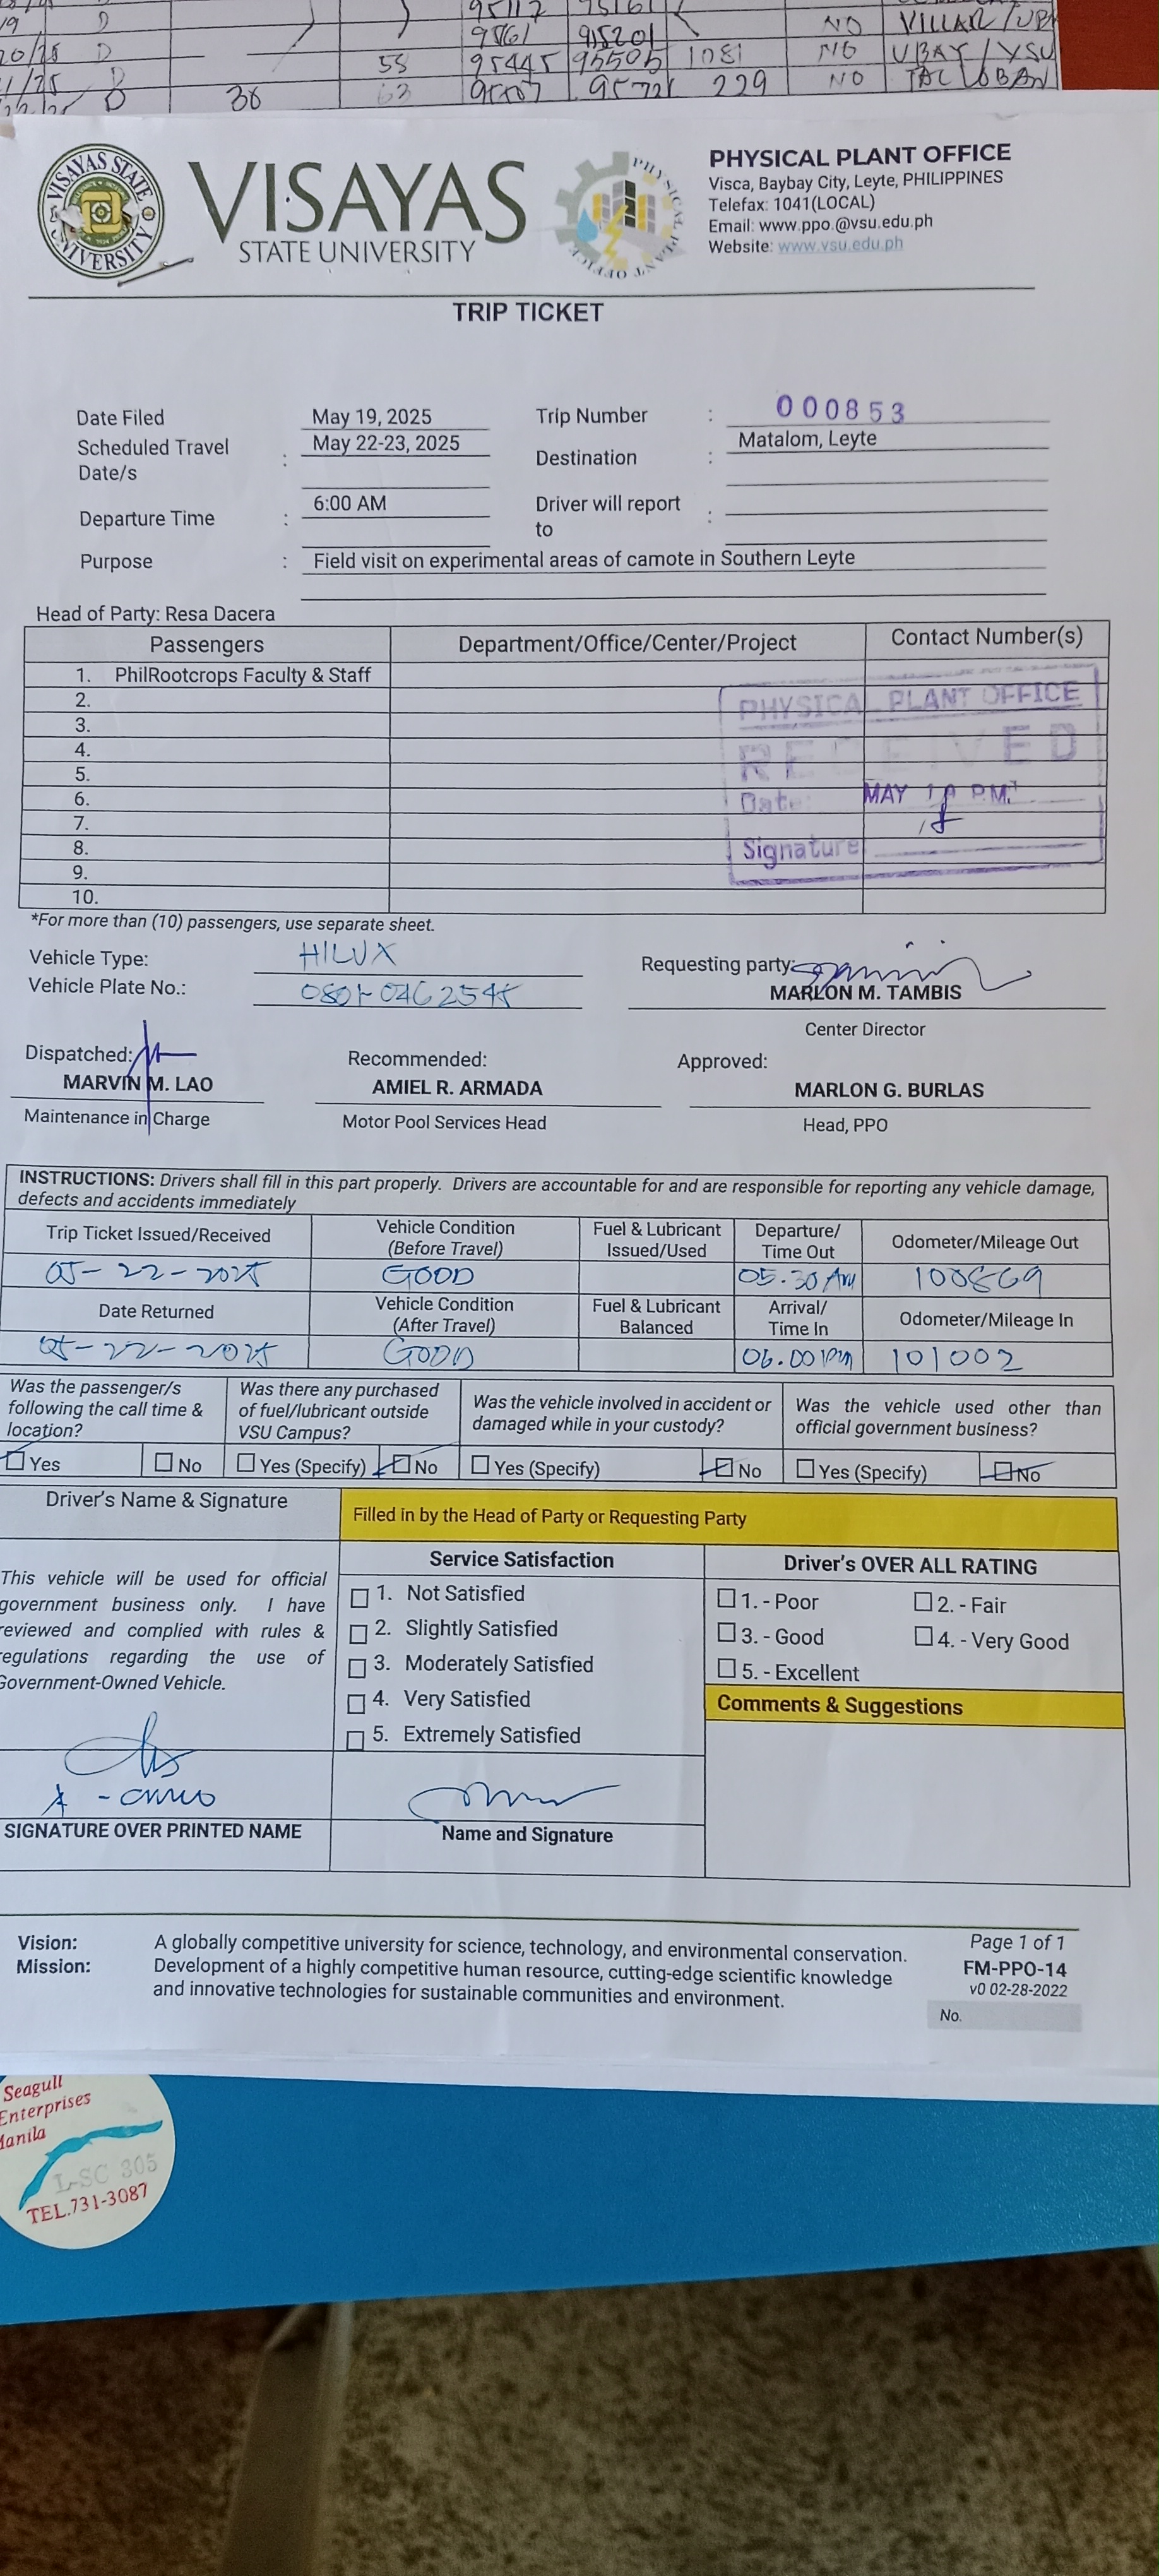 95117 95161
19 D 9561 95201 NO VILLAR/UBA
20/25 D 58 95445 95505 1081 NO UBAY/VSU
1/25 D 95507 9572 229 NO TACLOBAN
22/25 D 36 63
VISAYAS STATE UNIVERSITY
VISAYAS
STATE UNIVERSITY
PHYSICAL PLANT OFFICE
PHYSICAL PLANT OFFICE
Visca, Baybay City, Leyte, PHILIPPINES
Telefax: 1041(LOCAL)
Email: www.ppo.@vsu.edu.ph
Website: www.vsu.edu.ph
TRIP TICKET
Date Filed May 19, 2025 Trip Number : 000853
Scheduled Travel Date/s : May 22-23, 2025 Destination : Matalom, Leyte
Departure Time : 6:00 AM Driver will report to :
Purpose : Field visit on experimental areas of camote in Southern Leyte
Head of Party: Resa Dacera
Passengers Department/Office/Center/Project Contact Number(s)
1. PhilRootcrops Faculty & Staff
2.
3.
4.
5.
6.
7.
8.
9.
10.
PHYSICAL PLANT OFFICE
RECEIVED
Date: MAY PM
Signature
*For more than (10) passengers, use separate sheet.
Vehicle Type: HILUX
Vehicle Plate No.:
Requesting party:
MARLON M. TAMBIS
Center Director
Dispatched: Recommended: Approved:
MARVIN M. LAO AMIEL R. ARMADA MARLON G. BURLAS
Maintenance in Charge Motor Pool Services Head Head, PPO
INSTRUCTIONS: Drivers shall fill in this part properly. Drivers are accountable for and are responsible for reporting any vehicle damage,
defects and accidents immediately
Trip Ticket Issued/Received Vehicle Condition (Before Travel) Fuel & Lubricant Issued/Used Departure/ Time Out Odometer/Mileage Out
05-22-2025 GOOD 05.30 AM 100869
Date Returned Vehicle Condition (After Travel) Fuel & Lubricant Balanced Arrival/ Time In Odometer/Mileage In
05-22-2025 GOOD 06.00 PM 101002
Was the passenger/s following the call time & location?
Was there any purchased of fuel/lubricant outside VSU Campus?
Was the vehicle involved in accident or damaged while in your custody?
Was the vehicle used other than official government business?
Yes No Yes (Specify) No Yes (Specify) No Yes (Specify) No
Driver's Name & Signature
Filled in by the Head of Party or Requesting Party
This vehicle will be used for official
government business only. I have
reviewed and complied with rules &
regulations regarding the use of
Government-Owned Vehicle.
Service Satisfaction
1. Not Satisfied
2. Slightly Satisfied
3. Moderately Satisfied
4. Very Satisfied
5. Extremely Satisfied
Driver's OVER ALL RATING
1. - Poor 2. - Fair
3. - Good 4. - Very Good
5. - Excellent
Comments & Suggestions
SIGNATURE OVER PRINTED NAME
Name and Signature
Vision: A globally competitive university for science, technology, and environmental conservation.
Mission: Development of a highly competitive human resource, cutting-edge scientific knowledge
and innovative technologies for sustainable communities and environment.
Page 1 of 1
FM-PPO-14
v0 02-28-2022
No.
Seagull
Enterprises
Manila
L-SC 305
TEL.731-3087